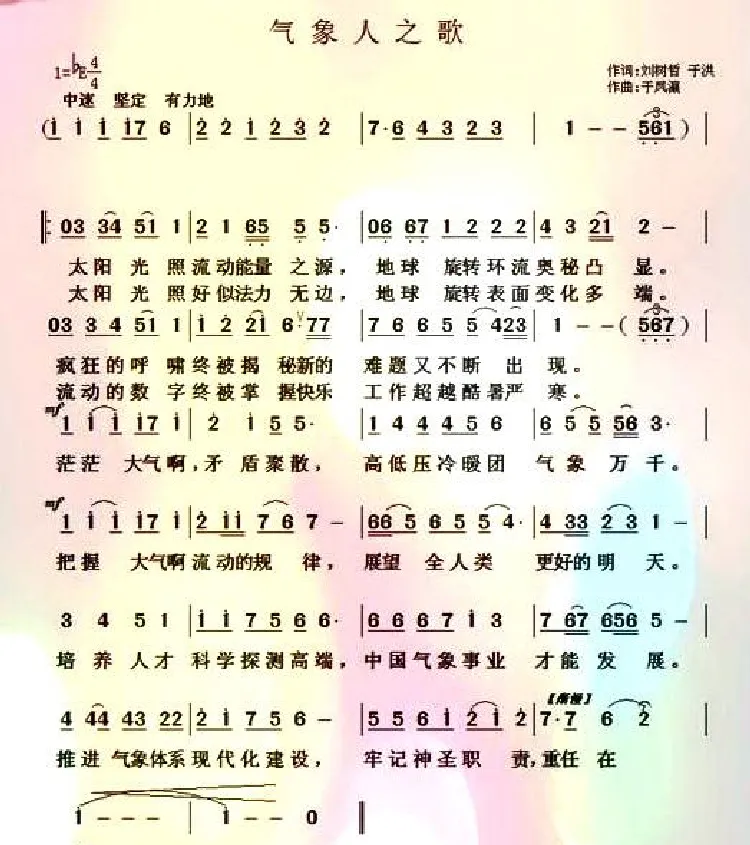 气象人之歌
1=♭E 4/4
作词:刘树哲 于洪
作曲:于凤瀛
中速 坚定 有力地
(1 1 1 17 6 | 2 2 1 2 3 2 | 7·6 4 3 2 3 | 1 - - 561)
03 34 51 1 | 2 1 65 5 5· | 06 67 1 2 2 2 | 4 3 21 2 -
太阳 光 照流动能量 之源， 地球 旋转环流奥秘凸 显。
太阳 光 照好似法力 无边， 地球 旋转表面变化多 端。
03 3 4 51 1 | 1 2 21 6 77 | 7 6 6 5 5 423 | 1 - - (567)
疯狂的呼 啸终被揭 秘新的 难题又不断 出 现。
流动的数 字终被掌 握快乐 工作超越酷暑严 寒。
mf
1 1 1 17 1 | 2 1 5 5· | 1 4 4 4 5 6 | 6 5 5 56 3·
茫茫 大气啊，矛 盾聚散， 高低压冷暖团 气象 万千。
mf
1 1 1 17 1 | 2 11 7 6 7 - | 66 5 6 5 5 4· | 4 33 2 3 1 -
把握 大气啊流动的规 律， 展望 全人类 更好的明 天。
3 4 5 1 | 1 1 7 5 6 6· | 6 6 6 7 1 3 | 7 67 656 5 -
培养人才 科学探测高端，中国气象事业 才能发 展。
4 44 43 22 | 2 1 7 5 6 - | 5 5 6 1 2 1 2 | 7·7 6 2
推进 气象体系现代化建设， 牢记神圣职 责，重任在
1 - - - | 1 - - 0